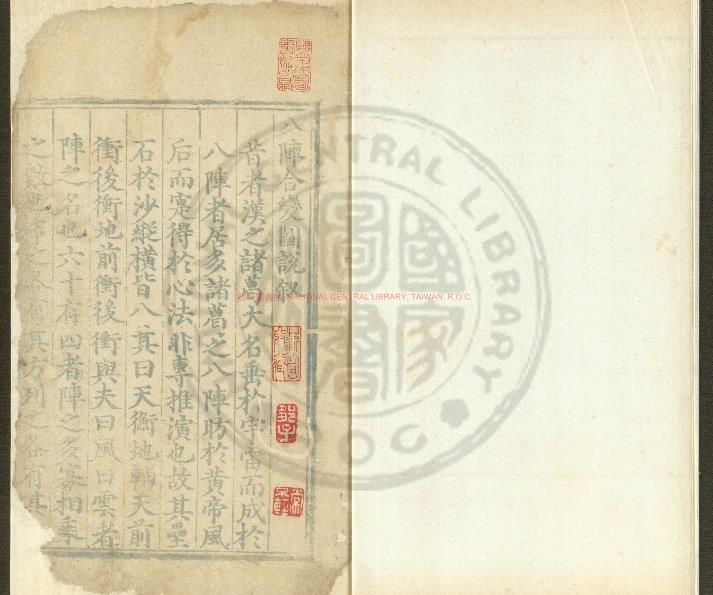 八陣合變圖說叙
昔者漢之諸葛大名垂於宇宙而成於
八陣者居多諸葛之八陣昉於黃帝風
后而寔得於心法非專推演也故其壘
石於沙縱橫皆八其曰天衡地軸天前
衝後衝地前衝後衝與夫曰風曰雲者
陣之名也六十有四者陣之多寡相乘
之數也
NATIONAL CENTRAL LIBRARY, TAIWAN, R.O.C.
國家圖書
CENTRAL LIBRARY